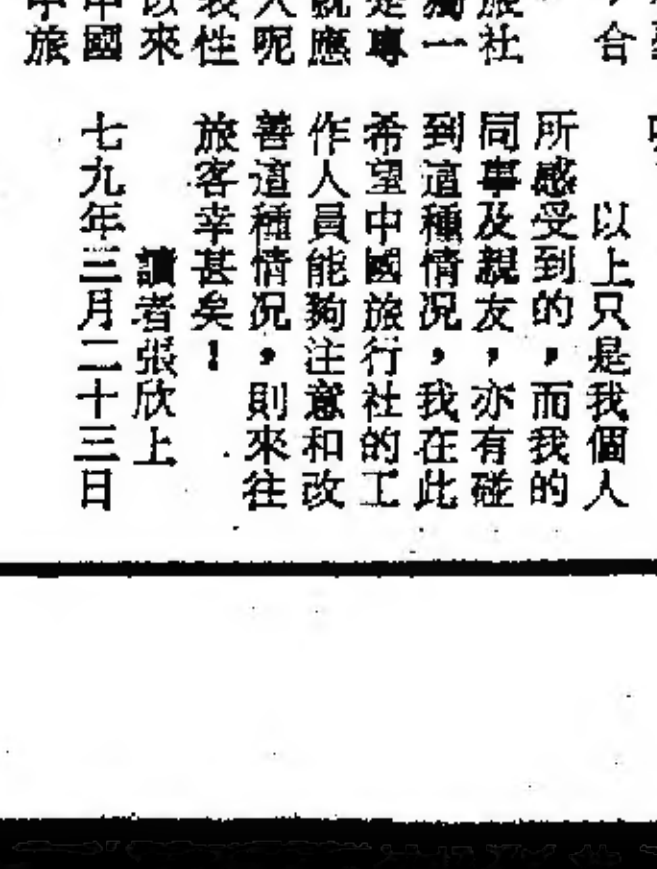 合
旅社
獨一
是專
就應
人呢
表性
以來
中國
中旅
以上只是我個人
所感受到的，而我的
同事及親友，亦有碰
到這種情况，我在此
希望中國旅行社的工
作人員能夠注意和改
善這種情况，則來往
旅客幸甚矣！
讀者張欣上
七九年三月二十三日